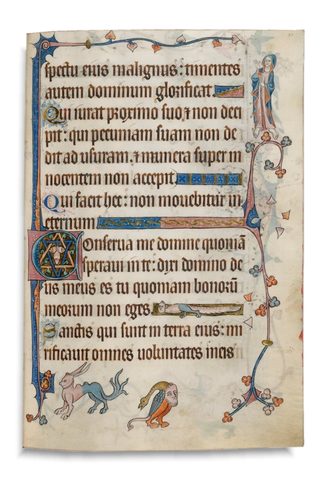 spectu eius malignus: timentes
autem dominum glorificat.
Qui iurat proximo suo, ⁊ non deci
pit: qui pecuniam suam non de
dit ad usuram, ⁊ munera super in
nocentem non accepit.
Qui facit hec: non mouebitur in
eternum
Conserua me domine quoniā
speraui in te: dixi domino de
us meus es tu quoniam bonorū
meorum non eges.
Sanctis qui sunt in terra eius: mi
rificauit omnes uoluntates